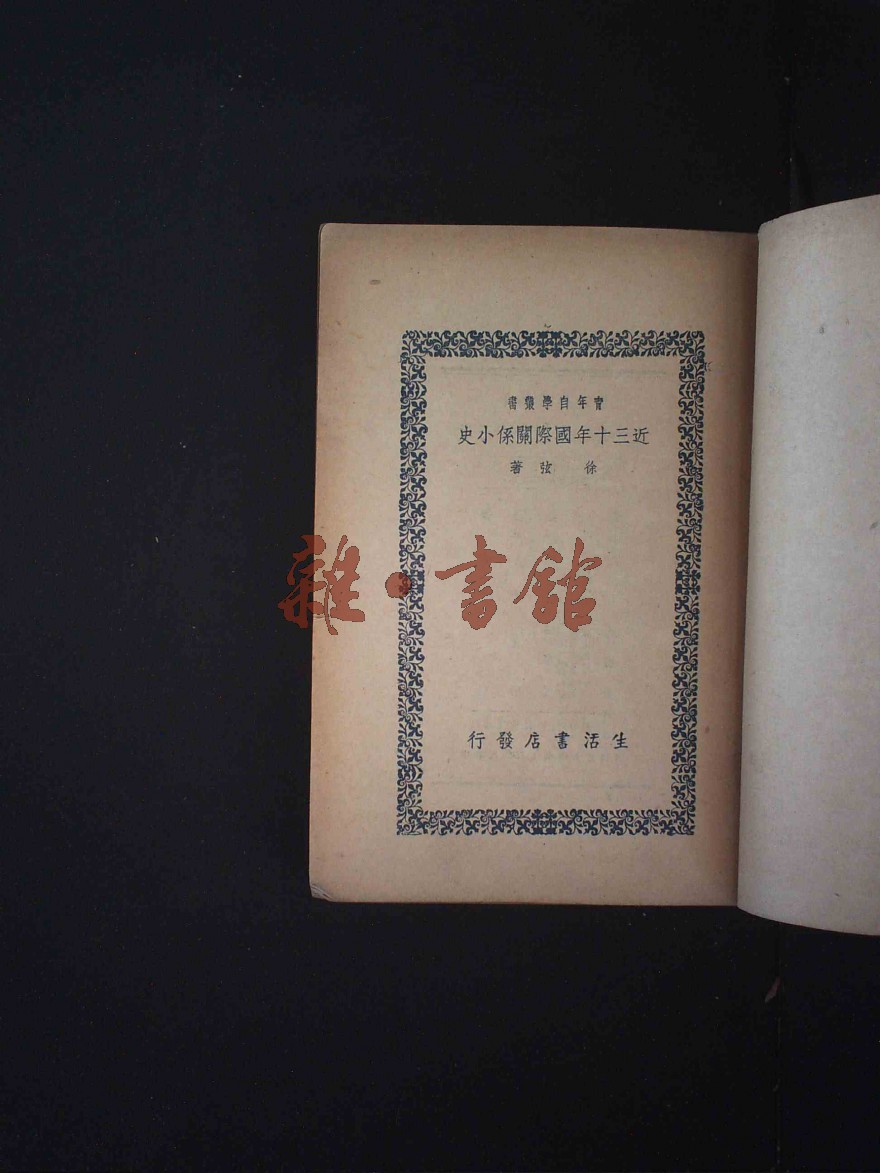 青年自學叢書
近三十年國際關係小史
徐弦著
雜·書館
生活書店發行